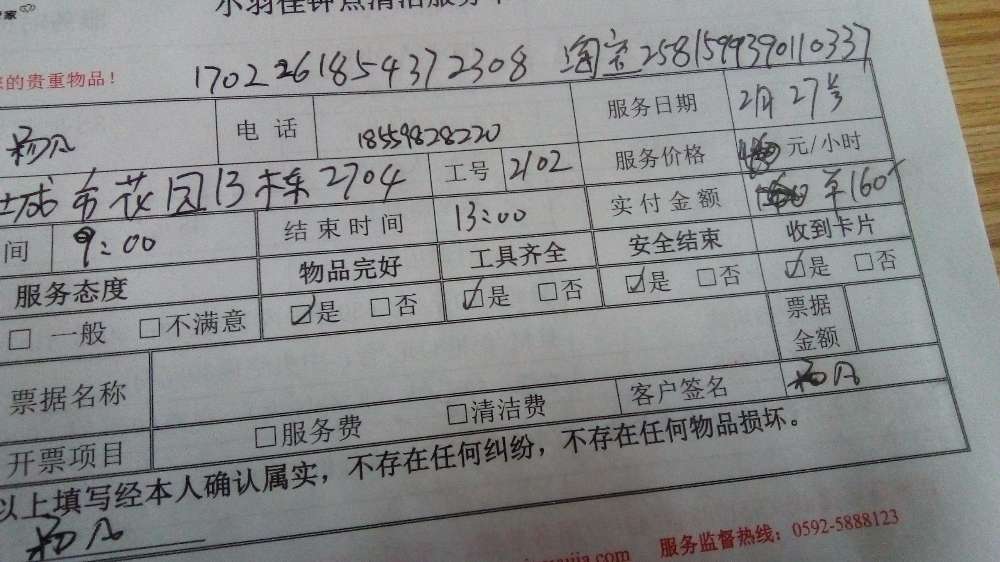 小羽佳钟点清洁服务
的贵重物品！
1702261854372308 淘宝2581599390110337
杨凡 电话 18559828220 服务日期 2月27号
城市花园13栋2704 工号 2102 服务价格 元/小时
间 9:00 结束时间 13:00 实付金额 单160
服务态度 物品完好 工具齐全 安全结束 收到卡片
□ 一般 □不满意 ☑是 □否 ☑是 □否 ☑是 □否 ☑是 □否
票据名称 票据金额
开票项目 □服务费 □清洁费 客户签名 杨凡
以上填写经本人确认属实，不存在任何纠纷，不存在任何物品损坏。
杨凡
.com 服务监督热线：0592-5888123